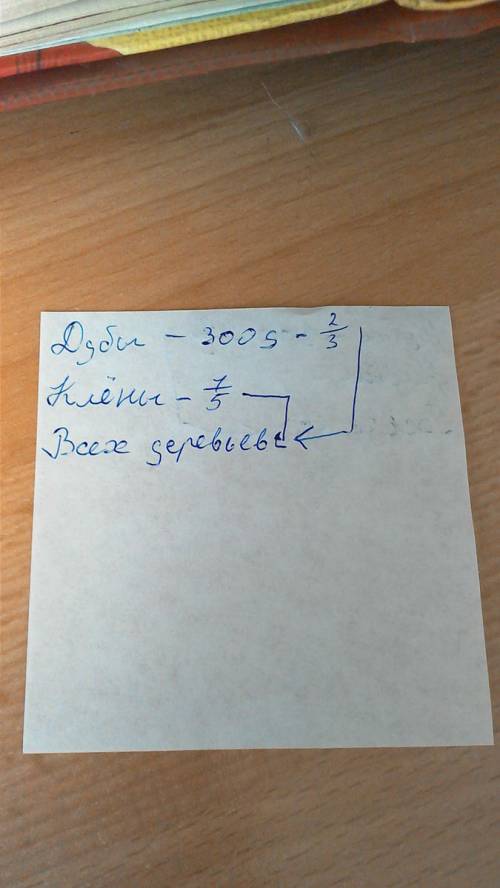 Дубы - 300д - 2/3
Клёны - 1/5
Всех деревьев